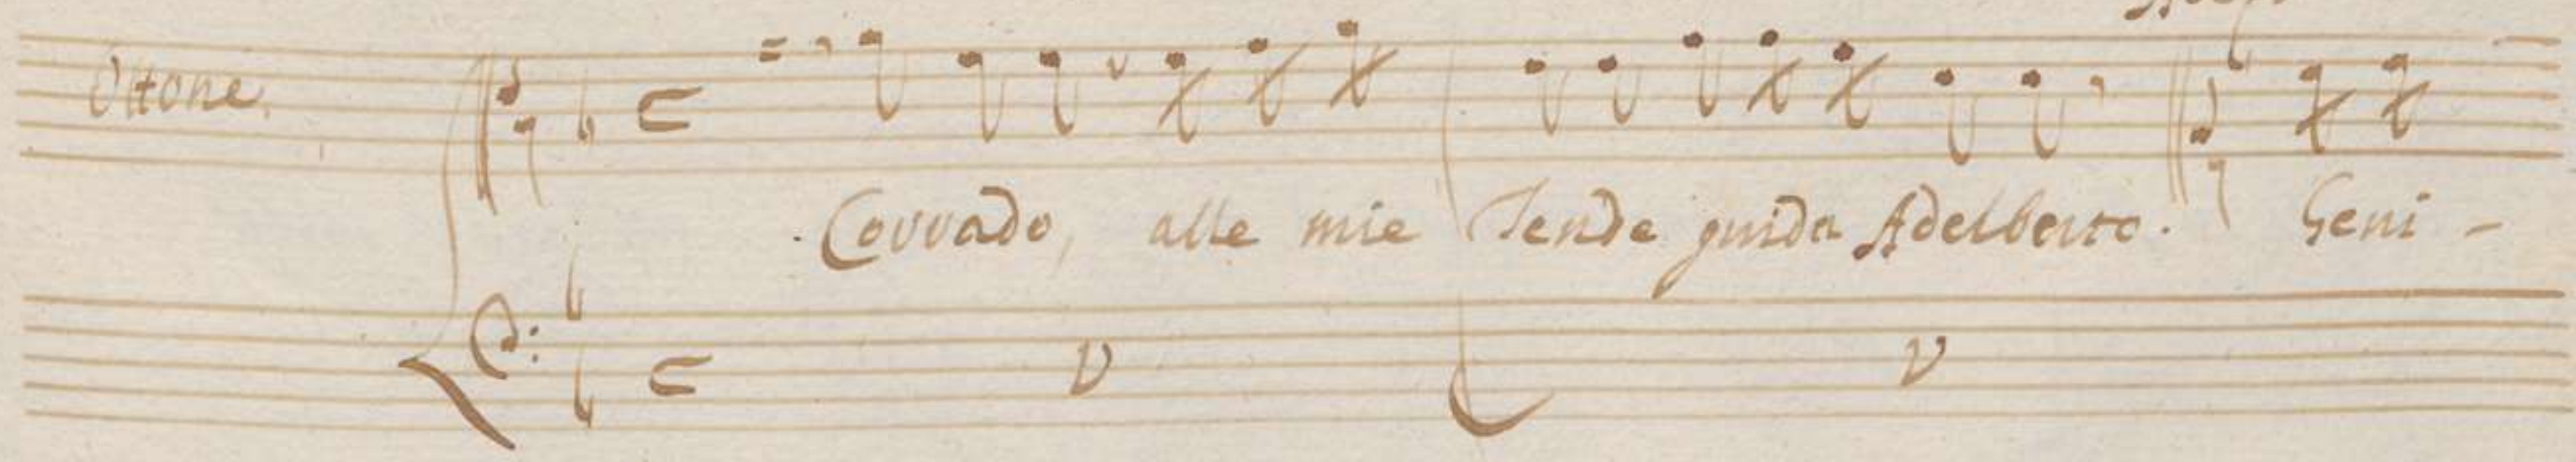 Ottone.
Corrado, alle mie Tende guida Adelberto. Geni -